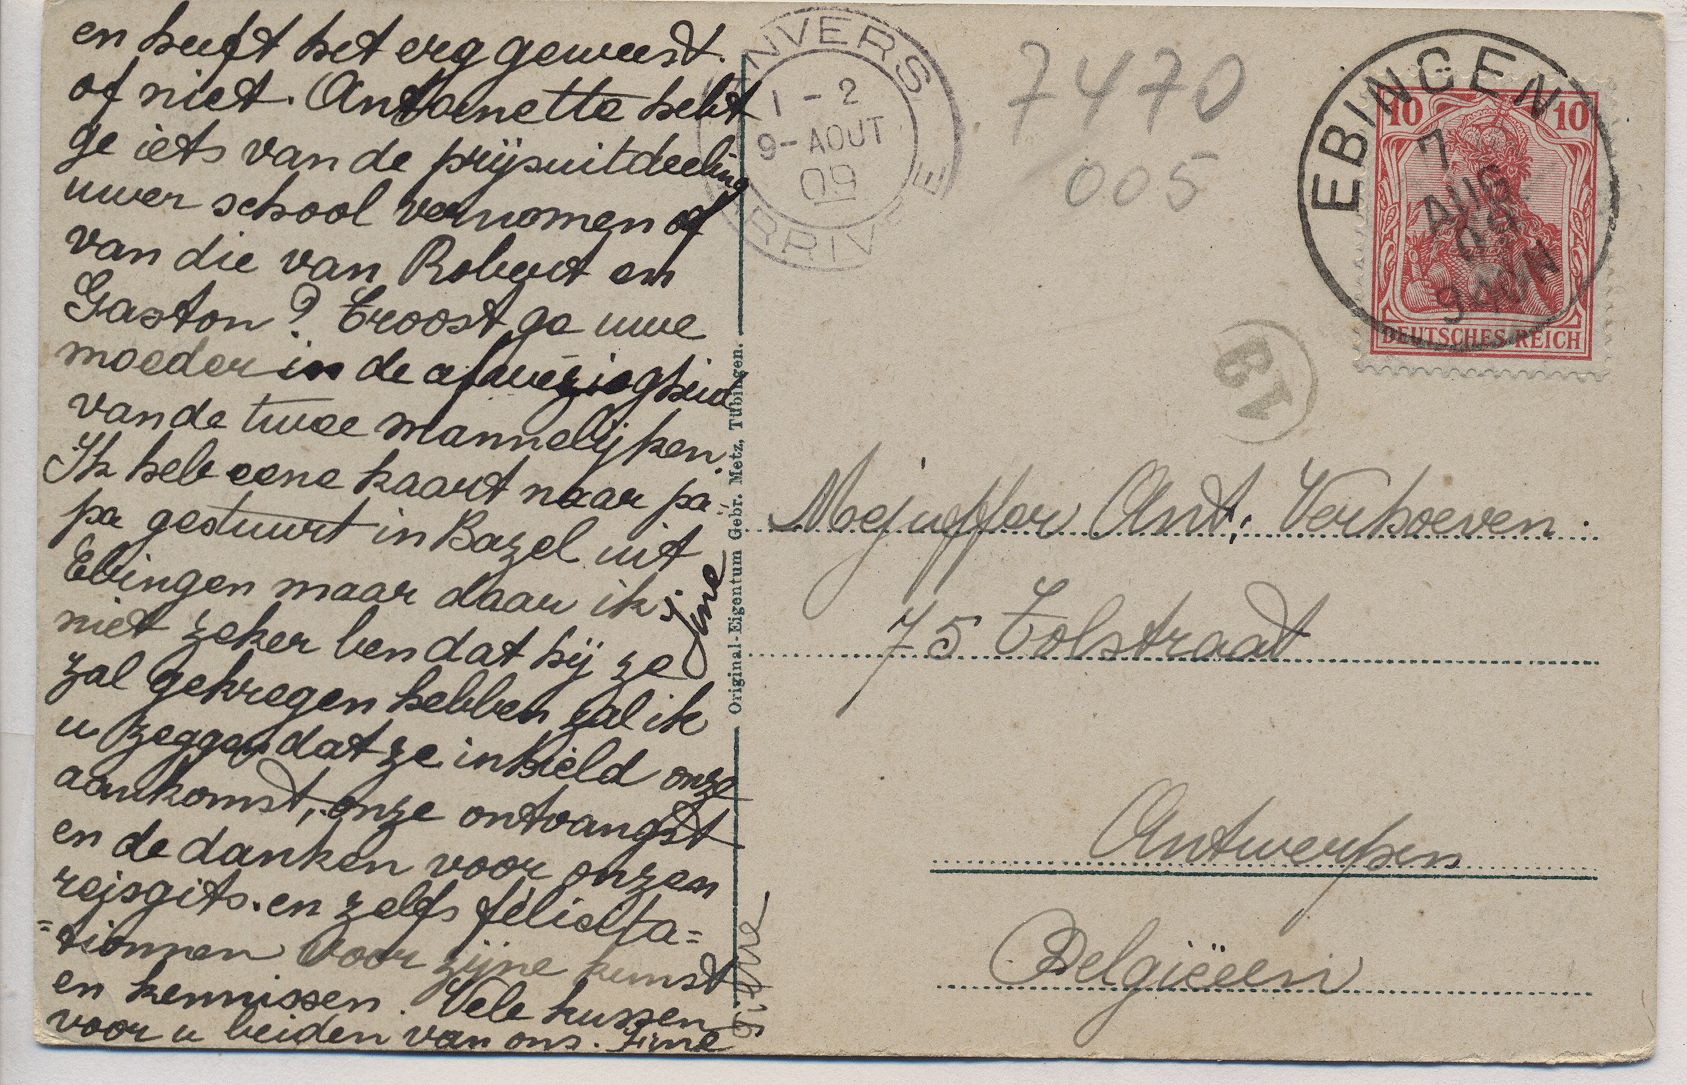 en heeft het erg geweest.
of niet. Antoinette hebt
ge iets van de prijsuitdeeling
uwer school vernomen of
van die van Robert en
Gaston? Troost ge uwe
moeder in de afwezigheid
van de twee mannelijken.
Ik heb eene kaart naar pa-
pa gestuurt in Bazel uit
Ebingen maar daar ik
niet zeker ben dat hij ze
zal gekregen hebben zal ik
u zeggen dat ze inhield onze
aankomst, onze ontvangst
en de danken voor onzen
rejsgits. en zelfs félicita=
=tionnen voor zijne kunst
en kennissen. Vele kussen
voor u beiden van ons. Fine
Jane
Original-Eigentum Gebr. Metz, Tübingen.
ANVERS
1 - 2
9 - AOUT
09
ARRIVEE
7470
005
EBINGEN
7
AUG
09
9-10N
10 10
DEUTSCHES REICH
B1
Mejuffer Ant. Verhoeven.
75 Tolstraat
Antwerpen
Belgiëen